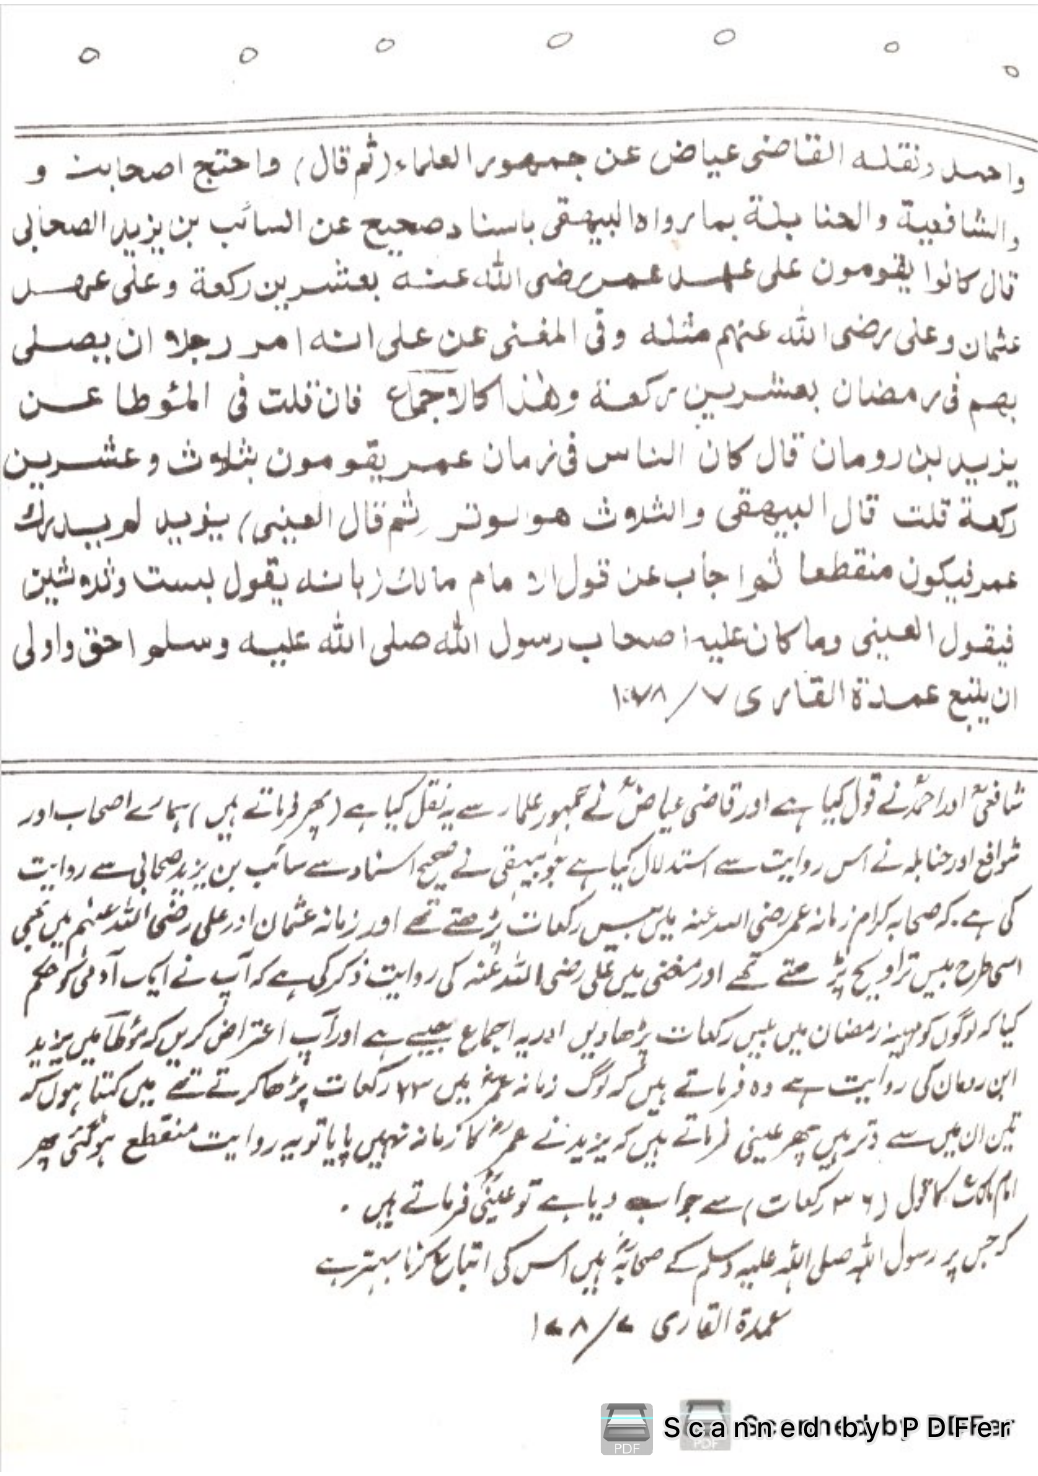 واحمد ونقله القاضى عياض عن جمهور العلماء (ثم قال) واحتج اصحابنا و
والشافعية والحنابلة بما رواه البيهقى باسناد صحيح عن السائب بن يزيد الصحابى
قال كانوا يقومون على عهد عمر رضى الله عنه بعشرين ركعة وعلى عهد
عثمان وعلى رضى الله عنهم مثله وفى المغنى عن على انه امر رجلا ان يصلى
بهم فى رمضان بعشرين ركعة وهٰذا كالاجماع فان قلت فى المؤطا عن
يزيد بن رومان قال كان الناس فى زمان عمر يقومون بثلاث وعشرين
ركعة قلت قال البيهقى والثلاث هو لوتر (ثم قال العينى) يزيد لم يدرك
عمر فيكون منقطعا ثم اجاب عن قول الامام مالك بانه يقول بست وثلاثين
فيقول العينى وما كان عليه اصحاب رسول الله صلى الله عليه وسلم احق واولى
ان يتبع عمدة القارى ٧/١٧٨
شافعیؒ اور احمدؒ نے قول کیا ہے اور قاضی عیاضؒ نے جمہور علماء سے یہ نقل کیا ہے (پھر فرماتے ہیں) ہمارے اصحاب اور
شوافع اور حنابلہ نے اس روایت سے استدلال کیا ہے جو بیہقی نے صحیح اسناد سے سائب بن یزید صحابی سے روایت
کی ہے۔ کہ صحابہ کرام زمانہ عمر رضی اللہ عنہ میں بیس رکعات پڑھتے تھے اور زمانہ عثمان اور علی رضی اللہ عنہم میں بھی
اسی طرح بیس تراویح پڑھتے تھے اور مغنی میں علی رضی اللہ عنہ کی روایت ذکر کی ہے کہ آپ نے ایک آدمی کو حکم
کیا کہ لوگوں کو مہینہ رمضان میں بیس رکعات پڑھاویں اور یہ اجماع جیسے ہے اور آپ اعتراض کریں کہ مؤطا میں یزید
ابن رمعان کی روایت ہے وہ فرماتے ہیں کہ لوگ زمانہ عمرؓ میں ۲۳ رکعات پڑھا کرتے تھے میں کہتا ہوں کہ
تین ان میں سے وتر ہیں پھر عینی فرماتے ہیں کہ یزید نے عمرؓ کا زمانہ نہیں پایا تو یہ روایت منقطع ہوگئی پھر
امام مالکؒ کا قول (۳۶ رکعات) سے جواب دیا ہے تو عینیؒ فرماتے ہیں ۔
کہ جس پر رسول اللہ صلی اللہ علیہ وسلم کے صحابہؓ ہیں اس کی اتباع کرنا بہتر ہے
عمدۃ القاری ۷/۱۷۸
Scanned by PDFer
Scanned by PDFer